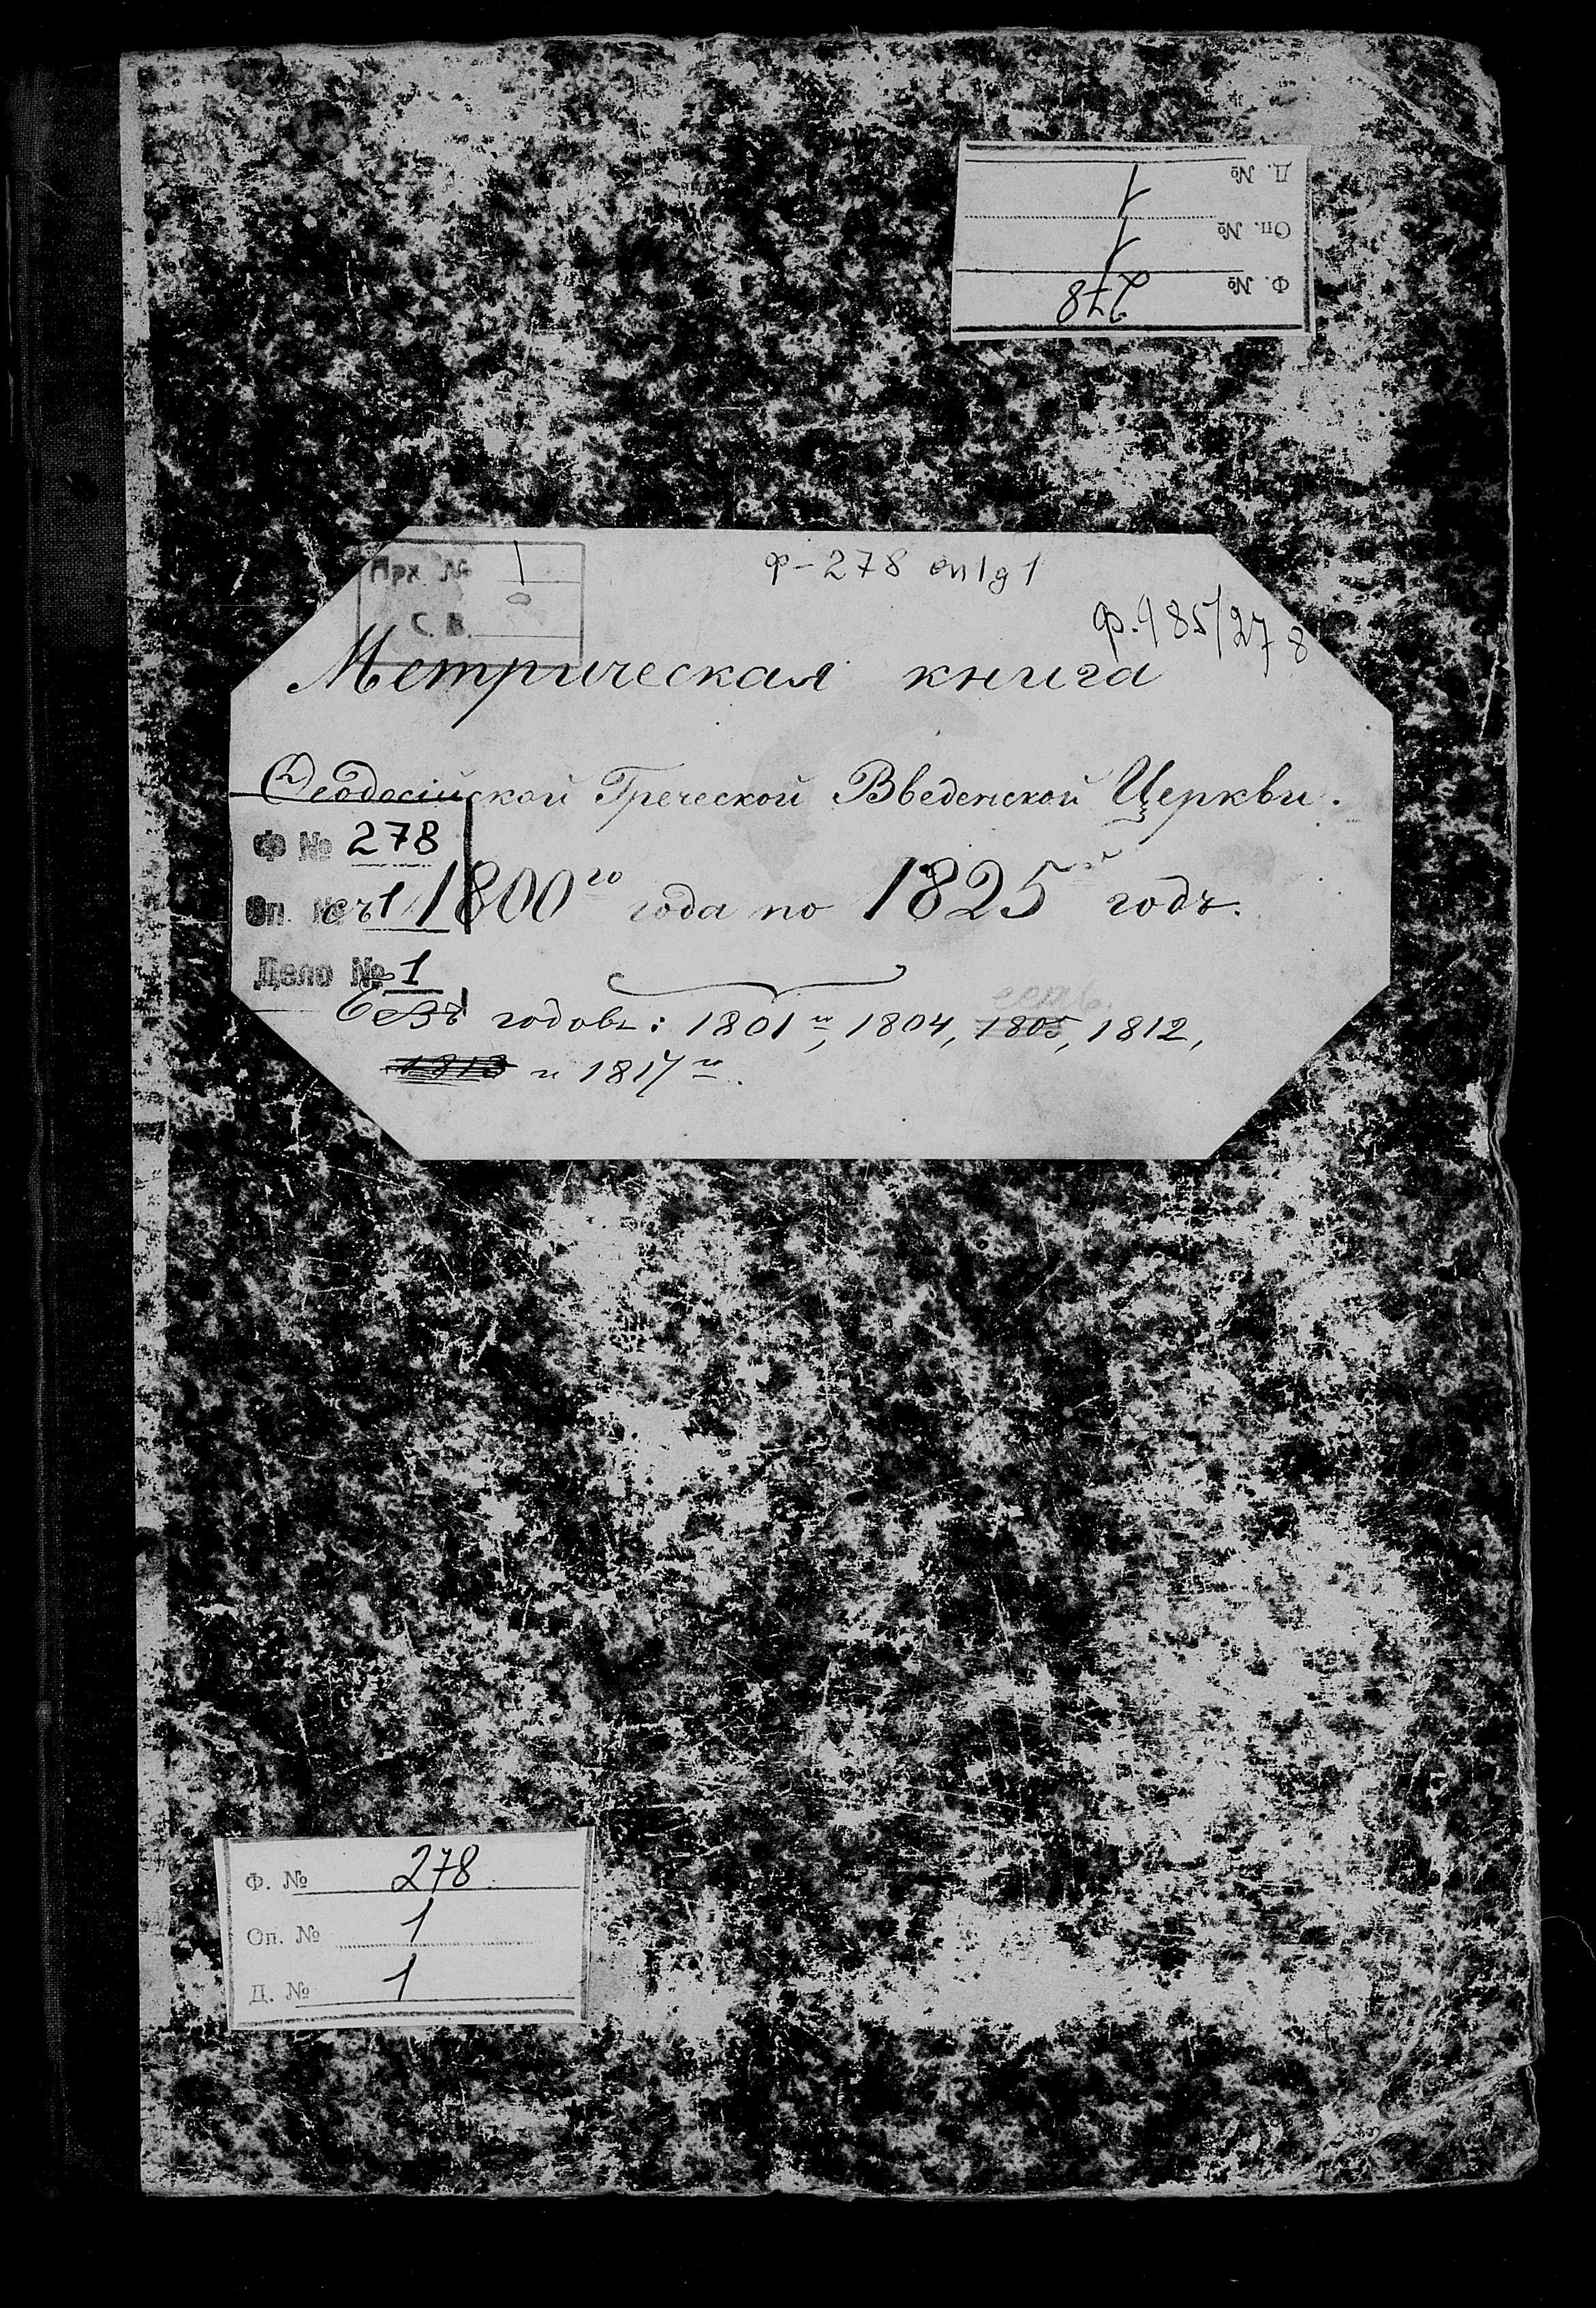 Д. № 1
Оп. № 1
Ф. № 278
Арх. № 1
С. В.
ф-278 оп1д1
ф.985/278
Метрическая книга
Ѳеодосійской Греческой Введенской Церкви.
Ф № 278
Оп. № 1
съ 1800го года по 1825й годъ.
Дело № 1
есть.
Безъ годовъ: 1801го, 1804, 1805, 1812,
1813 и 1817го.
Ф. № 278
Оп. № 1
Д. № 1